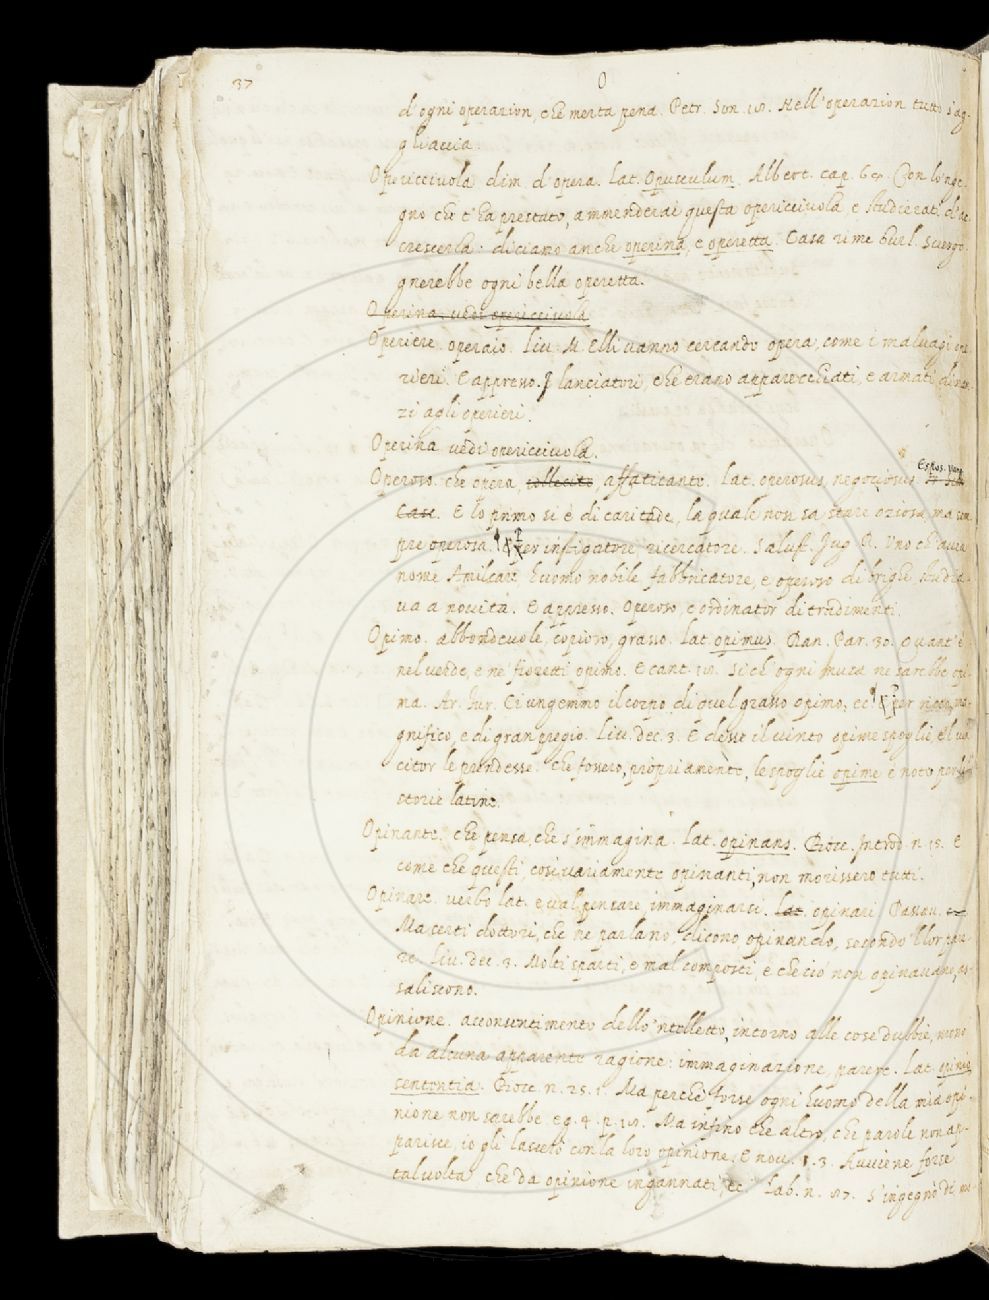 37
O
d'ogni operazion, che merta pena. Petr. Son. Nell'operazion tutto s'ag-
ghiaccia.
Opericciuola dim. d'opera. Lat. Opusculum. Albert. cap. Con lo'nge-
gno che t'ha prestato, ammenderai questa opericciuola, e studierati d'ac-
crescerla: diciamo anche operina, e operetta. Casa rime burl. Svergo-
gnerebbe ogni bella operetta.
Operina. vedi opericciuola
Operiere. operaio. Liv. M. Elli vanno cercando opera, come i malvagi ope-
rieri. E appresso. I lanciatori, che erano apparecchiati, e armati dinan-
zi agli operieri.
Operina vedi opericciuola.
Operoso. che opera, sollecito affaticante. Lat. operosus, negociosus. Espos. Vang.
E lo primo si è di caritade, la quale non sa stare oziosa, ma sem-
pre operosa. Per instigatore, ricercatore. Salust. Jug. R. Uno ch'avea
nome Amilcare huomo nobile fabbricatore, e operoso di brighe, studia-
va a novità. E appresso. Operoso, e ordinator di tradimenti.
Opimo. abbondevole, copioso, grasso. Lat. opimus. Dan. Par. 30. Quant'è
nel verde, e ne' fioretti opimo. E cant. Sì ch'ogni musa ne sarebbe opi-
ma. Ar. Fur. Ei ungemmo il corpo di quel grasso opimo, ec. Per ricco, ma-
gnifico, e di gran pregio. Liv. dec. 3. E desse il vinto opime spoglie, e'l vin-
citor le prendesse. che fossero, propriamente, le spoglie opime è noto per l'i-
storie latine.
Opinante. che pensa, che s'immagina. Lat. opinans. Bocc. Introd. n. E
come che questi, così variamente opinanti, non morissero tutti.
Opinare. verbo lat. e val pensare, immaginarsi. Lat. opinari. Passav.
Ma certi dottori, che ne parlano, dicono, opinando, secondo 'llor pa-
re. Liv. dec. 3. Molti sparti, e mal composti, e che ciò non opinavano, as-
saliscono.
Opinione. acconsentimento dello 'ntelletto, intorno alle cose dubbie, mosso
da alcuna apparente ragione: immaginazione, parere. Lat. opinio
sententia. Bocc. n. 25. 1. Ma perchè forse ogni huomo della mia opi-
nione non sarebbe. e g. 4. p. Ma infino che altro, che parole non ap-
parisce, io gli lascerò con la loro opinione. E nov. 1. 3. Avviene forse
talvolta che da opinione ingannati, ec. Lab. n. S'ingegnò di